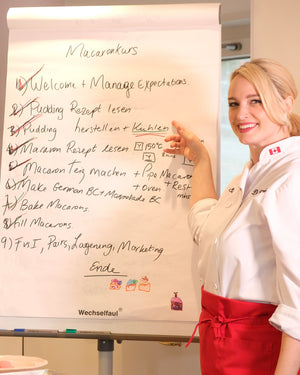 Macaronkurs
1) Welcome + Manage Expectations
2) Pudding Rezept lesen
3) Pudding herstellen + Kühlen
4) Macaron Rezept lesen 150°C
5) Macaron Teig machen + Pipe Macaron
6) Make German BC + Marmolada BC + oven + Rest
7) Bake Macarons.
8) Fill Macarons.
9) FnI, Pairs, Lagerung, Marketing
Ende
Wechselfaul